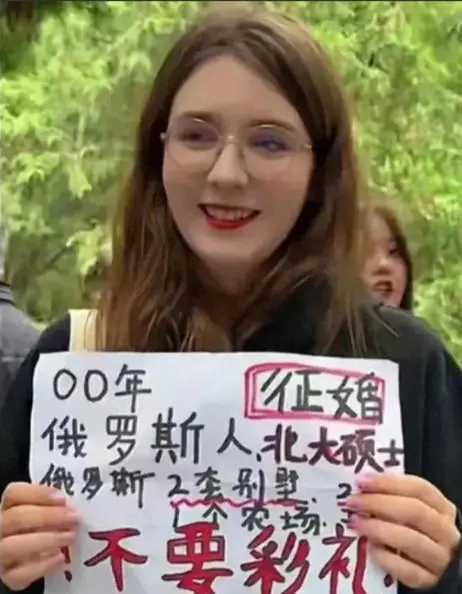 00年 征婚
俄罗斯人.北大硕士
俄罗斯 2套别墅.2
1个农场.
!不要彩礼!